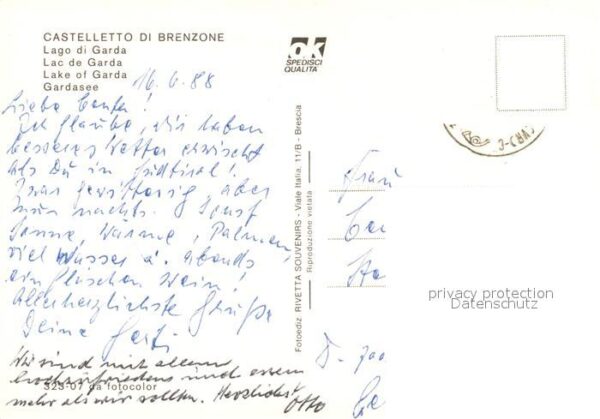 CASTELLETTO DI BRENZONE
Lago di Garda
Lac de Garda
Lake of Garda
Gardasee
ok
SPEDISCI
QUALITÀ
16.6.88
Liebe
Ich glaube, wir haben
besseres Wetter erwischt
als Du in Südtirol!
Zwar gewittrig, aber
nur nachts. Sonst
Sonne, Wärme, Palmen,
viel Wasser u. abends
ein Fläschen Wein!
Allerherzlichste Grüße
Deine
Wir sind mit allem
hochzufrieden und essen
mehr als wir sollten. Herzlichst
Otto
323-07 da fotocolor
Fotoediz. RIVETTA SOUVENIRS - Viale Italia, 11/B - Brescia
Riproduzione vietata
Frau
D-700
privacy protection
Datenschutz